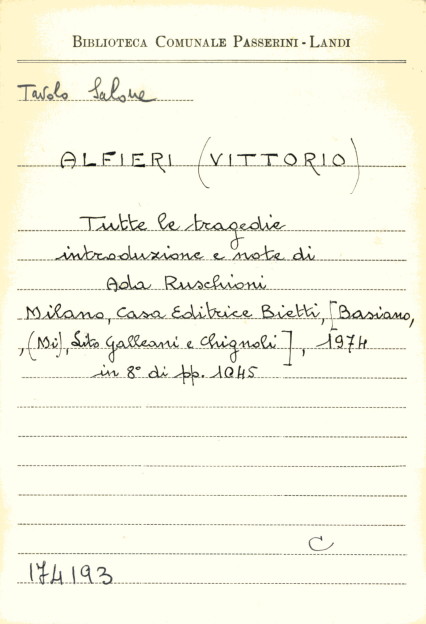 BIBLIOTECA COMUNALE PASSERINI - LANDI
Tavolo Salone
ALFIERI (VITTORIO)
Tutte le tragedie
introduzione e note di
Ada Ruschioni
Milano, Casa Editrice Bietti, [Basiano,
, (Mi), Lito Galleani e Chignoli], 1974
in 8° di pp. 1045
C
174193